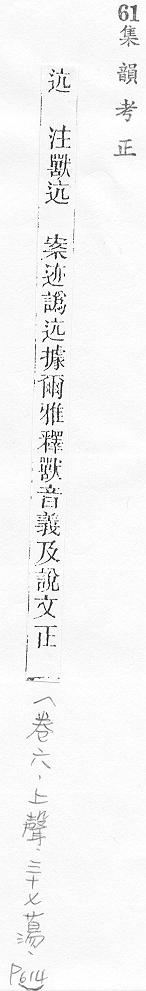 61集韻考正
迒 注獸迒 案迹譌迒據爾雅釋獸音義及說文正
(卷六、上聲、三十七蕩、P614)